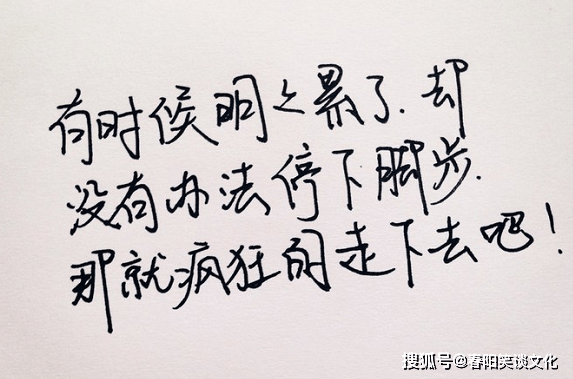 有时候明々累了.却
没有办法停下脚步.
那就疯狂的走下去吧!
搜狐号@春阳笑谈文化